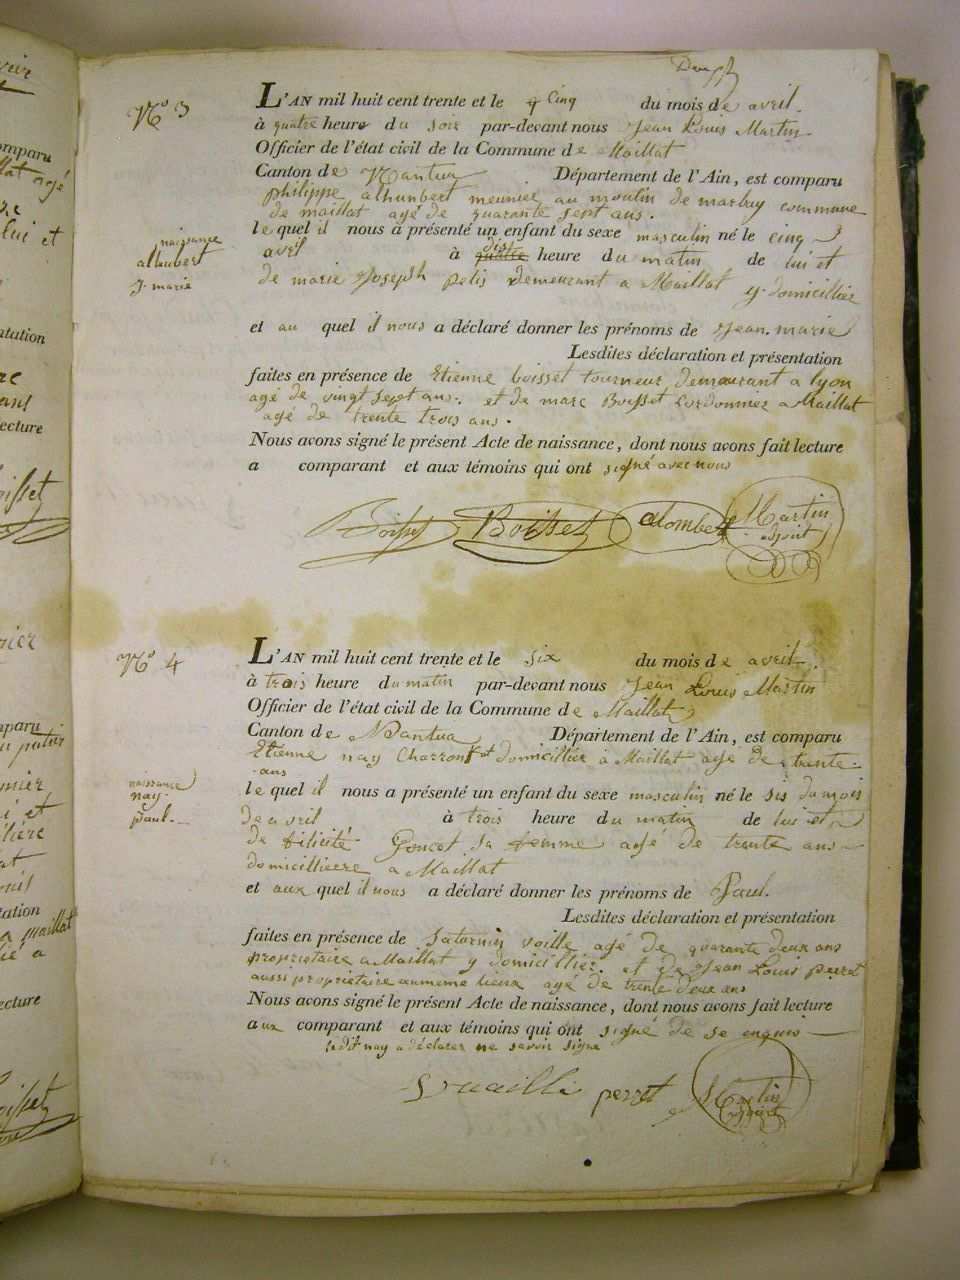 N.º 3
L'AN mil huit cent trente et le cinq du mois de avril.
à quatre heure du soir par-devant nous Jean Louis Martin
Officier de l'état civil de la Commune de Maillat
Canton de Nantua Département de l'Ain, est comparu
philippe alhunbert meunier au moulin de marbuy commune
de maillat agé de quarante sept ans.
naissance
alhubert
J. marie
le quel il nous a présenté un enfant du sexe masculin né le cinq
avril à dist heure du matin de lui et
de marie Joseph pelis demeurant a Maillat y domicillier
et au quel il nous a déclaré donner les prénoms de Jean. marie
Lesdites déclaration et présentation
faites en présence de Etienne boisset tourneur demeurant a lyon
agé de vingt sept ans. et de marc Boisset cordonnier a Maillat
agé de trente trois ans.
Nous avons signé le présent Acte de naissance, dont nous avons fait lecture
a comparant et aux témoins qui ont signé avec nous
Boisset Boisset alombert Martin
adjoint
N.º 4
L'AN mil huit cent trente et le six du mois de avril.
à trois heure du matin par-devant nous Jean Louis Martin
Officier de l'état civil de la Commune de Maillat
Canton de Nantua Département de l'Ain, est comparu
Etienne nay Charron et domicillier à Maillat agé de trente
ans
naissance
nay.
paul.
le quel il nous a présenté un enfant du sexe masculin né le sis du mois
de avril à trois heure du matin de lui et
de filicité Goncet sa femme agé de trente ans
domicilliere a Maillat
et aux quel il nous a déclaré donner les prénoms de Paul.
Lesdites déclaration et présentation
faites en présence de Saturnin voille agé de quarante deux ans
propriétaire a Maillat y domicillier. et de Jean Louis perret
aussi propriétaire au meme lieux agé de trente deux ans
Nous avons signé le présent Acte de naissance, dont nous avons fait lecture
aux comparant et aux témoins qui ont signé de se enquis
ledit nay a déclarer ne savoir signé
perret Martin
adjoint